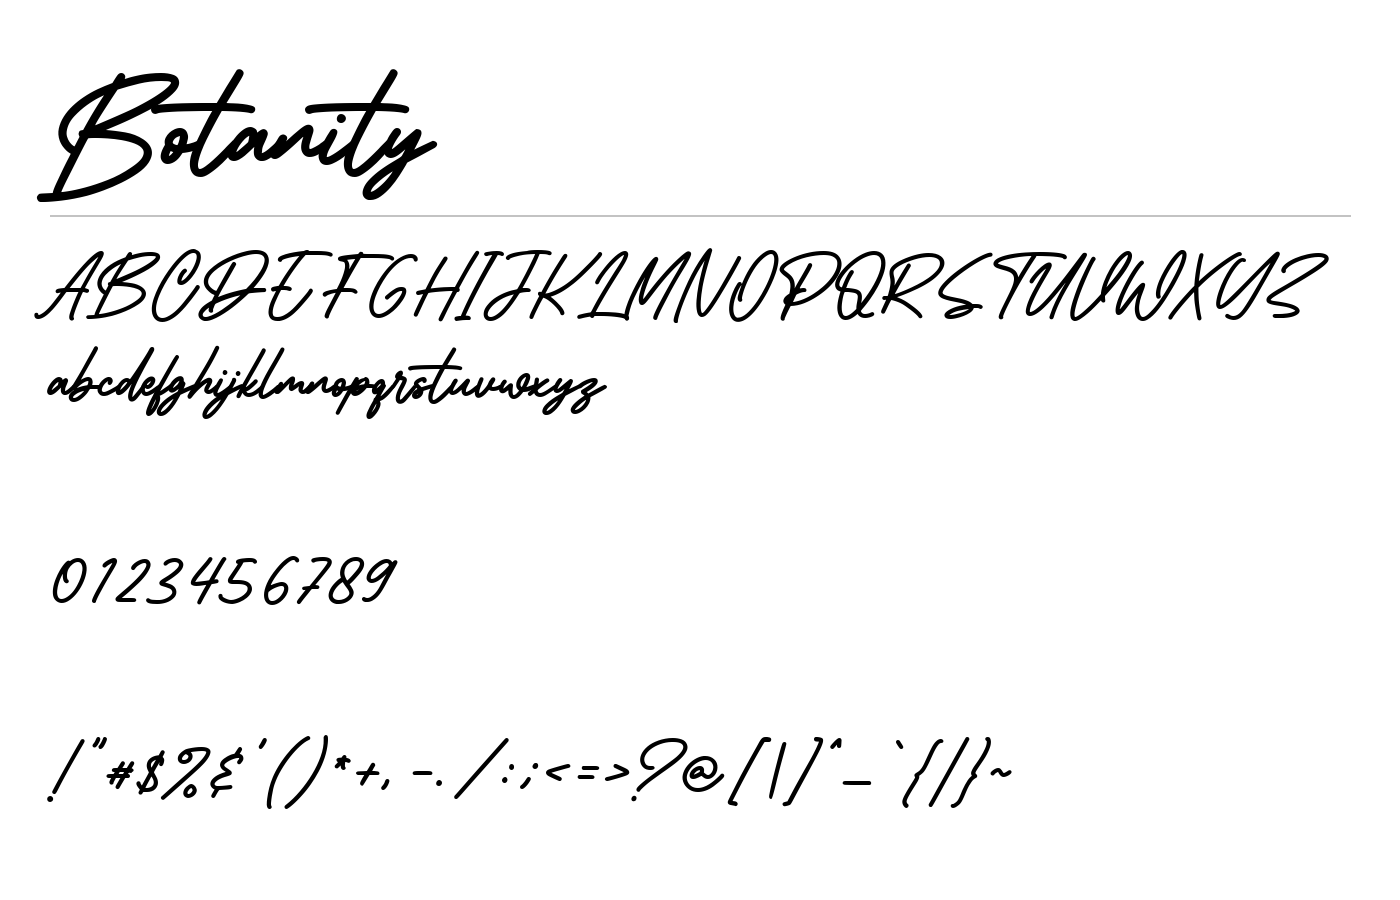 Botanity
ABCDEFGHIJKLMNOPQRSTUVWXYZ
abcdefghijklmnopqrstuvwxyz
0123456789
!"#$%&'()*+,-./:;<=>?@[\]^_`{|}~